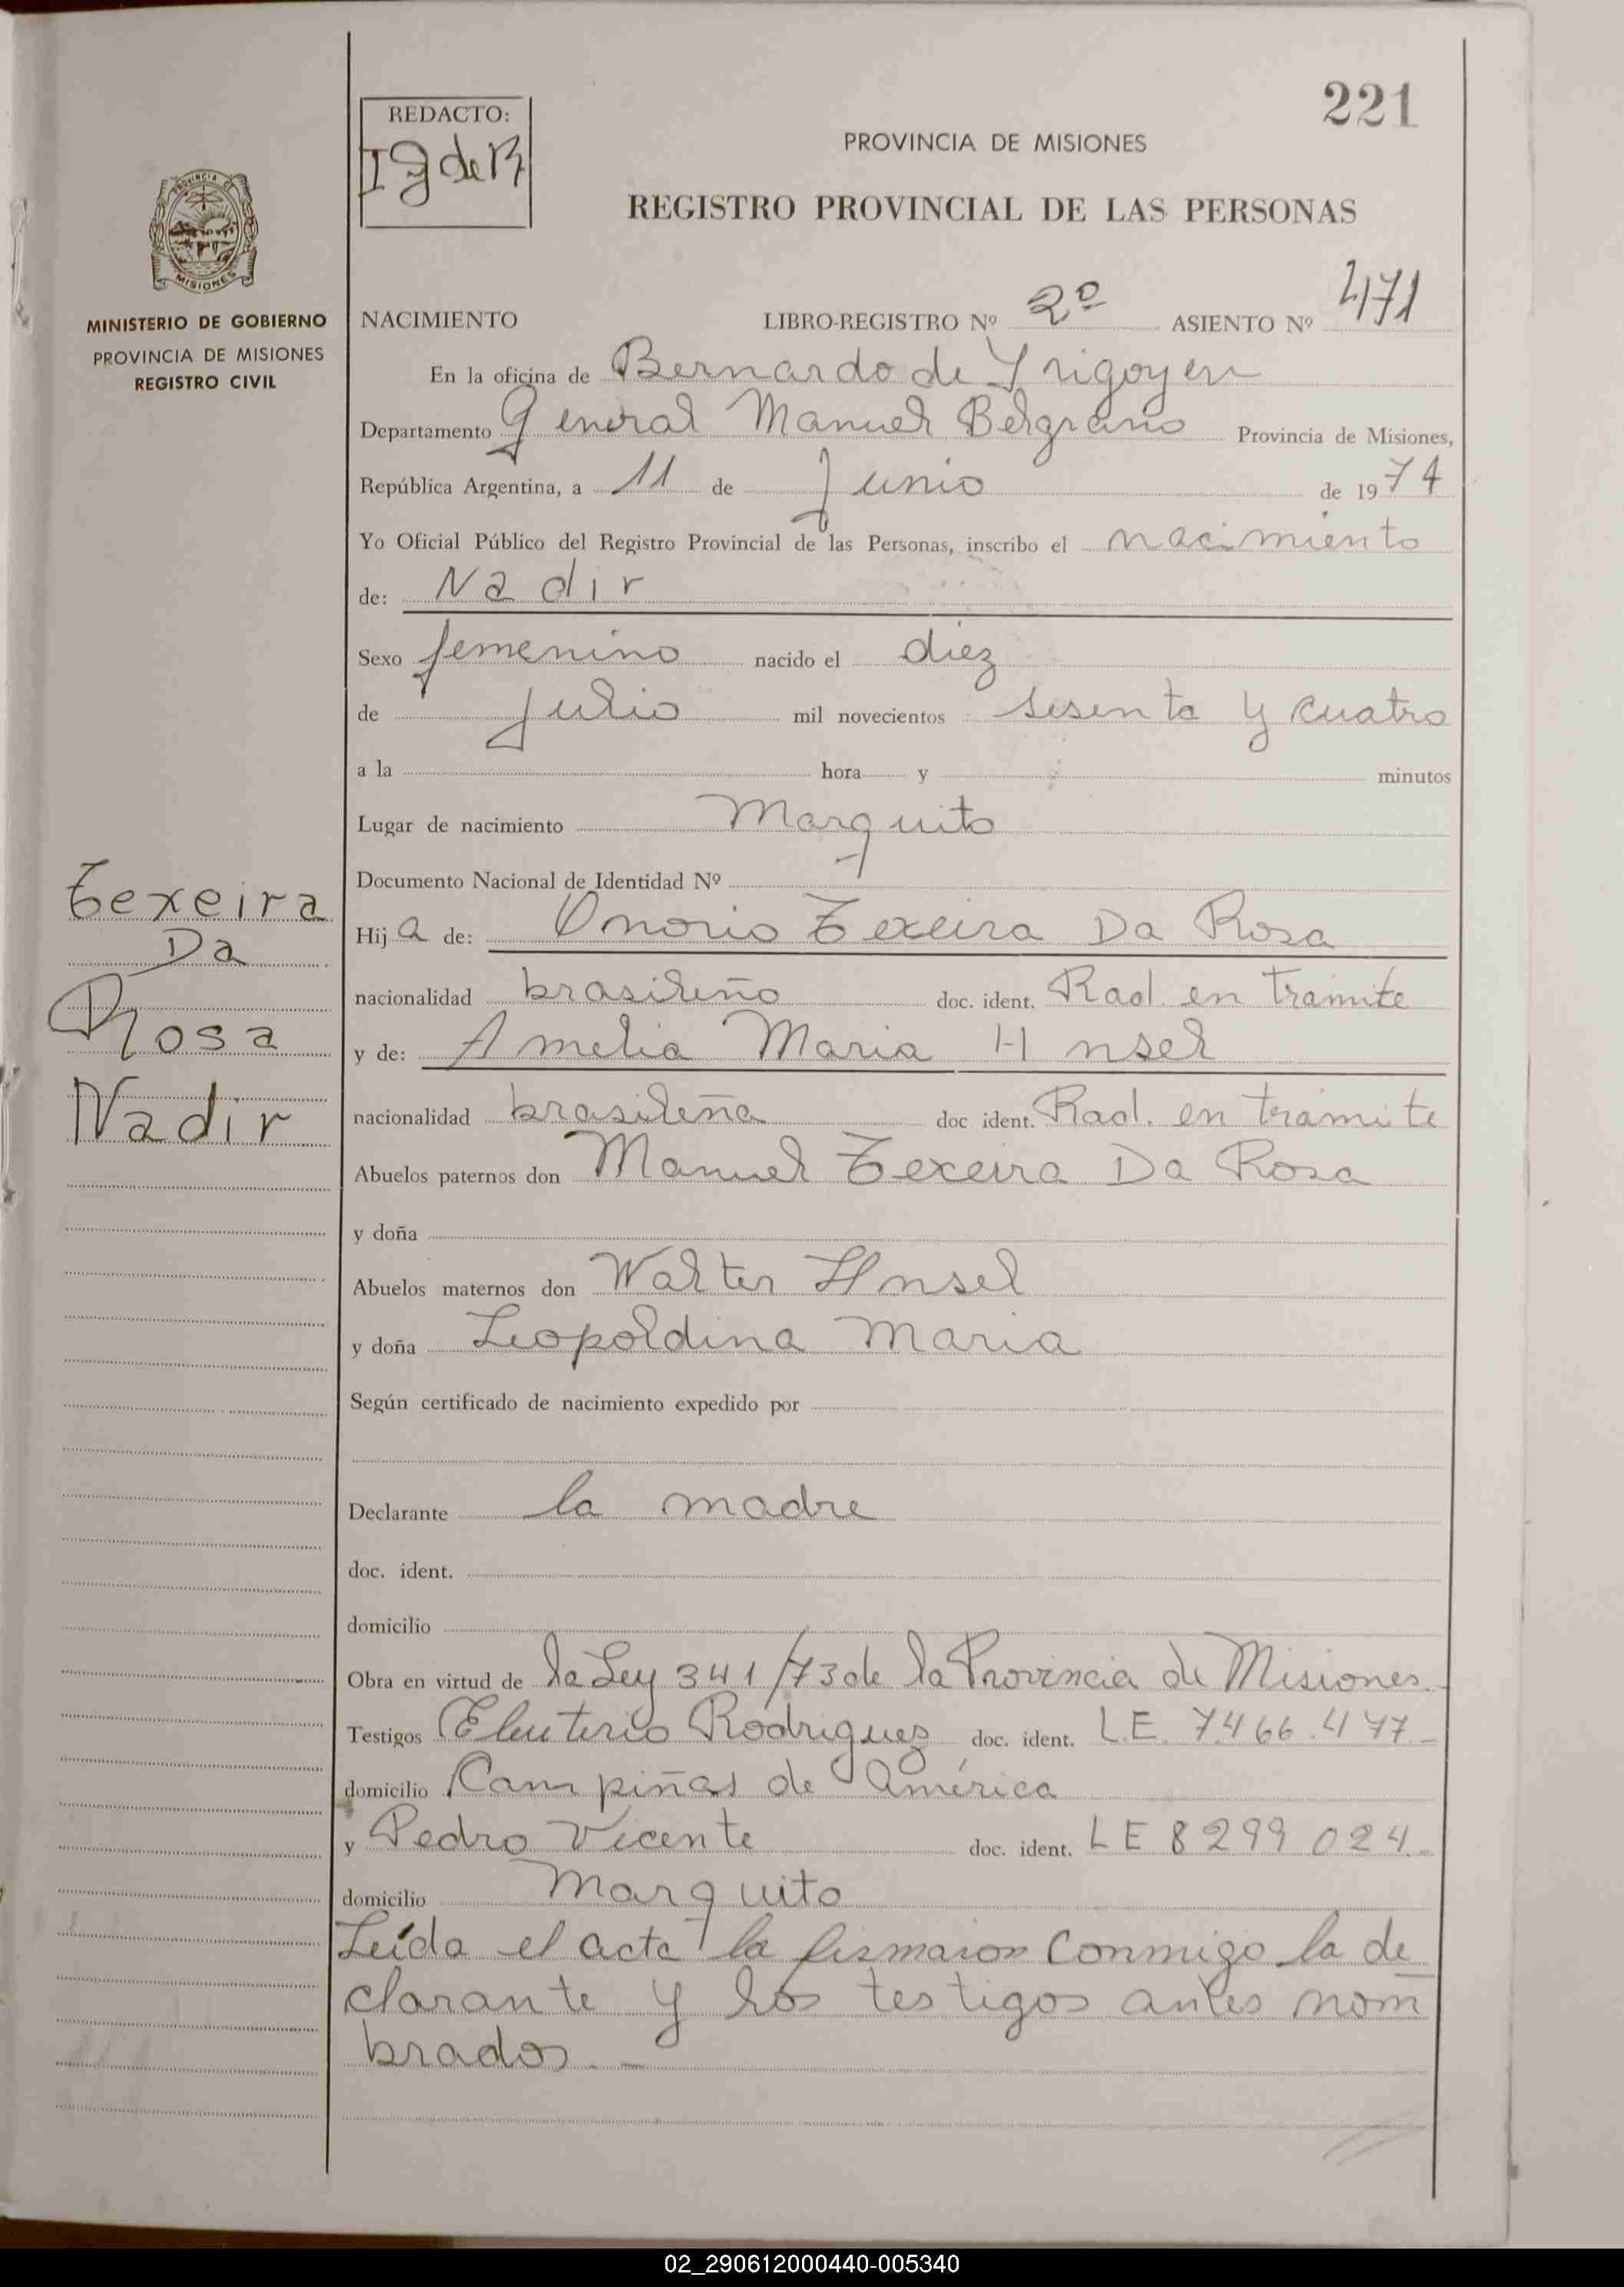 221
REDACTO:
PROVINCIA DE MISIONES
REGISTRO PROVINCIAL DE LAS PERSONAS
PROVINCIA DE
MISIONES
MINISTERIO DE GOBIERNO
PROVINCIA DE MISIONES
REGISTRO CIVIL
NACIMIENTO LIBRO-REGISTRO Nº 2º ASIENTO Nº 471
En la oficina de Bernardo de Yrigoyen
Departamento General Manuel Belgrano Provincia de Misiones,
República Argentina, a 11 de Junio de 1974
Yo Oficial Público del Registro Provincial de las Personas, inscribo el nacimiento
de: Nadir
Sexo femenino nacido el diez
de Julio mil novecientos sesenta y cuatro
a la hora y minutos
Lugar de nacimiento Marquito
Documento Nacional de Identidad Nº
Texeira
Da
Rosa
Nadir
Hija de: Onorio Texeira Da Rosa
nacionalidad brasileño doc. ident. Rad. en tramite
y de: Amelia Maria Hnsel
nacionalidad brasileña doc ident. Rad. en tramite
Abuelos paternos don Manuel Texeira Da Rosa
y doña
Abuelos maternos don Walter Hnsel
y doña Leopoldina Maria
Según certificado de nacimiento expedido por
Declarante la madre
doc. ident.
domicilio
Obra en virtud de la Ley 341/73 de la Provincia de Misiones.
Testigos Eleuterio Rodriguez doc. ident. L.E. 7.466.477-
domicilio Campiñas de América
y Pedro Vicente doc. ident. LE 8299024.
domicilio Marquito
Leída el acta la firmaron conmigo la de
clarante y los testigos antes nom
brados.-
02_290612000440-005340